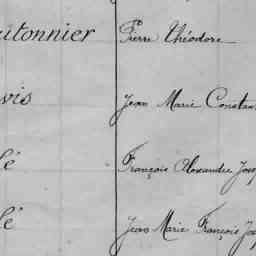 utonnier Pierre Théodore
vis Jean Marie Constan
lé François Alexandre Jos
lé Jean Marie François Jos